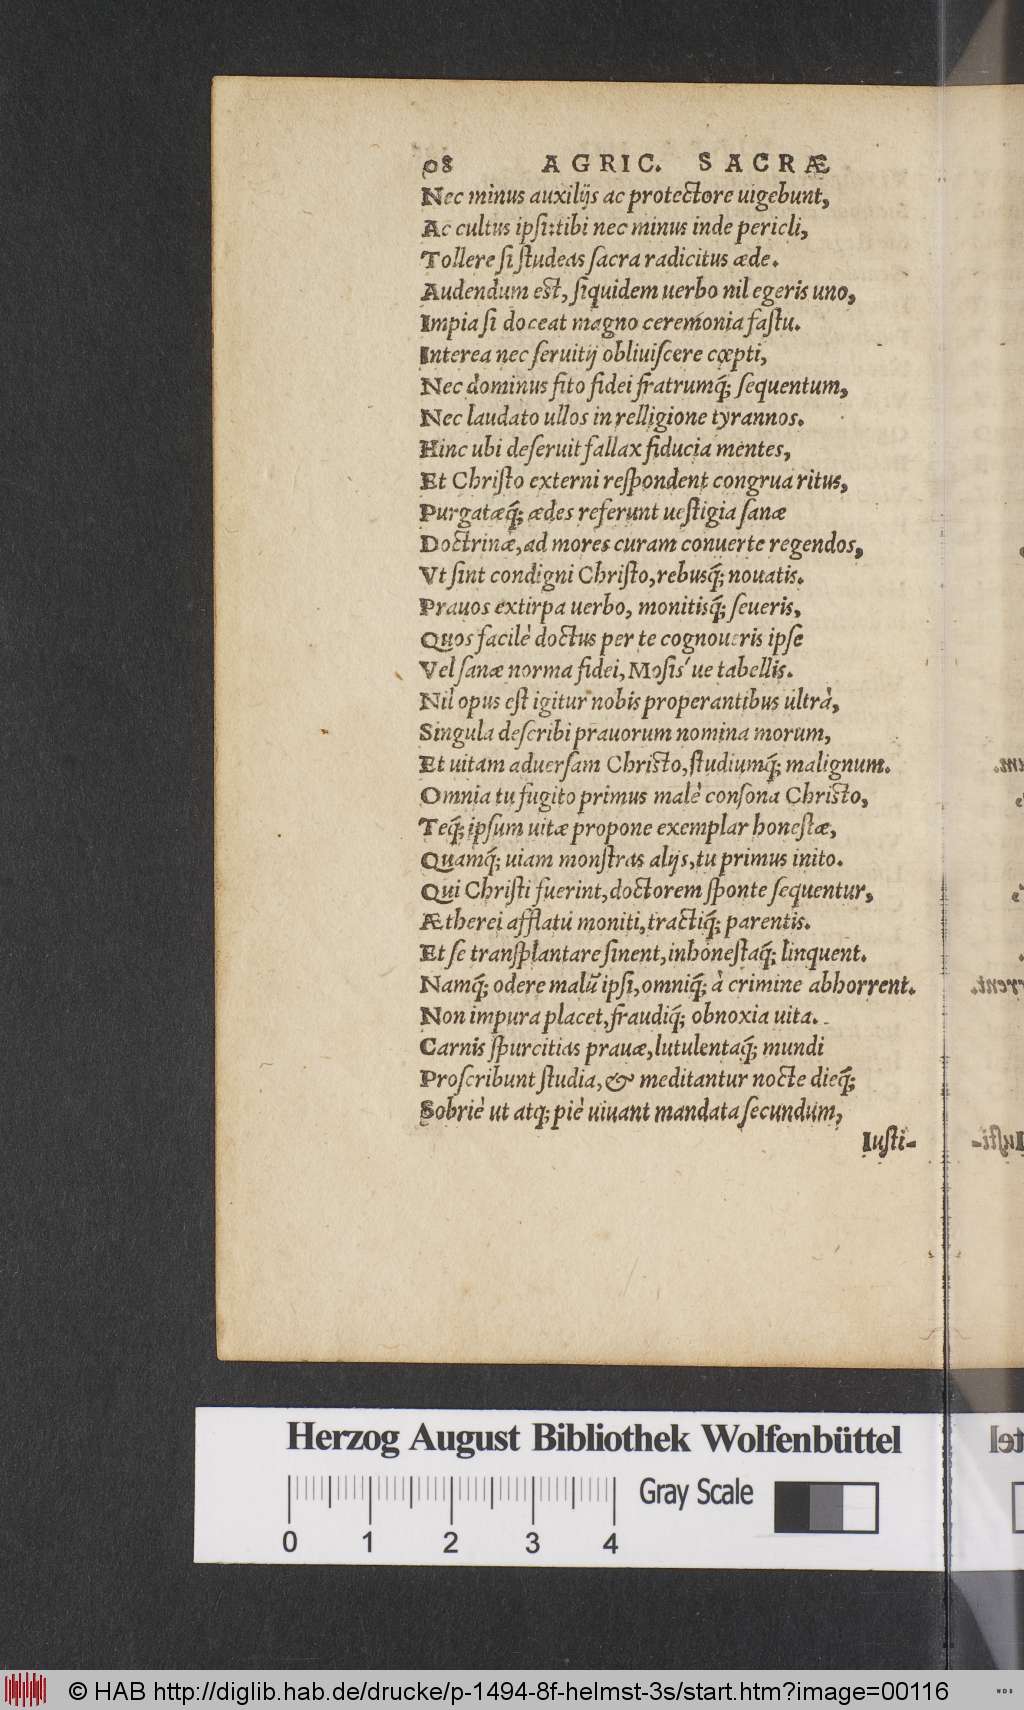 08 AGRIC. SACRÆ
Nec minus auxilijs ac protectore uigebunt,
Ac cultus ipsi: tibi nec minus inde pericli,
Tollere si studeas sacra radicitus æde.
Audendum est, siquidem uerbo nil egeris uno,
Impia si doceat magno ceremonia fastu.
Interea nec seruitij obliuiscere cœpti,
Nec dominus fito fidei fratrumq́; sequentum,
Nec laudato ullos in relligione tyrannos.
Hinc ubi deseruit fallax fiducia mentes,
Et Christo externi respondent congrua ritus,
Purgatæq́; ædes referunt uestigia sanæ
Doctrinæ, ad mores curam conuerte regendos,
Vt sint condigni Christo, rebusq́; nouatis.
Prauos extirpa uerbo, monitisq́; seueris,
Quos facilè doctus per te cognoueris ipse
Vel sanæ norma fidei, Mosis'ue tabellis.
Nil opus est igitur nobis properantibus ultrà,
Singula describi prauorum nomina morum,
Et uitam aduersam Christo, studiumq́; malignum.
Omnia tu fugito primus malè consona Christo,
Teq́; ipsum uitæ propone exemplar honestæ,
Quamq́; uiam monstras alijs, tu primus inito.
Qui Christi fuerint, doctorem sponte sequentur,
Ætherei afflatu moniti, tractiq́; parentis.
Et se transplantare sinent, inhonestaq́; linquent.
Namq́; odere malũ ipsi, omniq́; à crimine abhorrent.
Non impura placet, fraudiq́; obnoxia uita.
Carnis spurcitias prauæ, lutulentaq́; mundi
Proscribunt studia, & meditantur nocte dieq́;
Sobriè ut atq; piè uiuant mandata secundum,
Iusti-
Herzog August Bibliothek Wolfenbüttel
Gray Scale
0 1 2 3 4
© HAB http://diglib.hab.de/drucke/p-1494-8f-helmst-3s/start.htm?image=00116